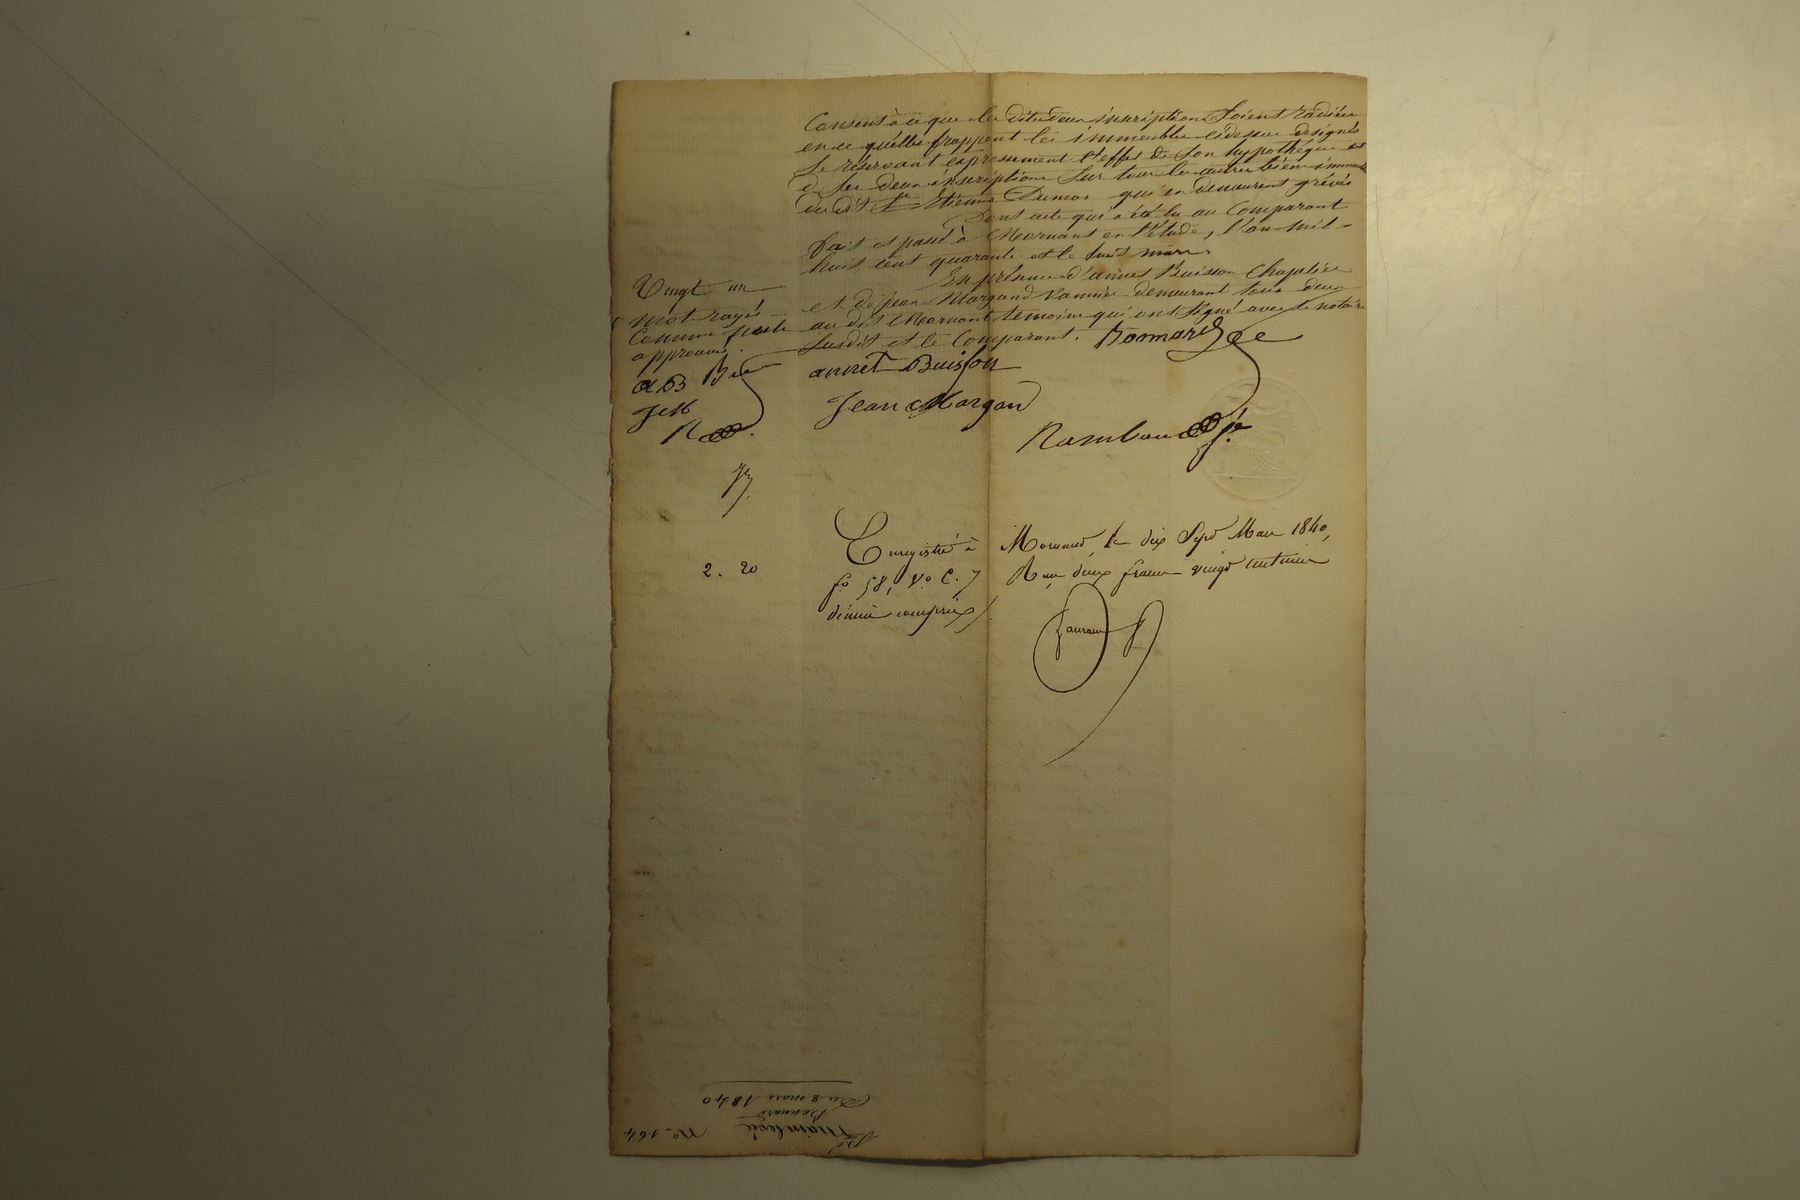 Consent à ce que les dites deux inscriptions soient radiées
en ce qu'elles frappent les immeubles cidessus designés
se réservant expressement l'effet de son hypothéque et
de ses deux inscriptions sur tous les autres biens immeub
du dit Sr Etienne Dumas qui en demeurent grévés
Dont acte qui a été lu au Comparant
fait et passé à Mornant en l'étude, l'an mil-
huit cent quarante et le huit mars.
En présence d'annet Buisson Chapelier
et de Jean Margand vannier demeurant tous deux
au dit Mornant témoins qui ont signé avec le notaire
susdit et le Comparant. Bonnard
Vingt un
mot rayés
Comme nuls
approuvés.
AB
JM
R
annet Buisson
Jean Margand
Rambaud
Enregistré à Mornant, le dix Sept Mars 1840,
fo 58, Vo C. 7 Reçu deux francs vingt centimes
2. 20
décime compris
No 164
Mainlevée
Bonnard
Du 8 mars 1840